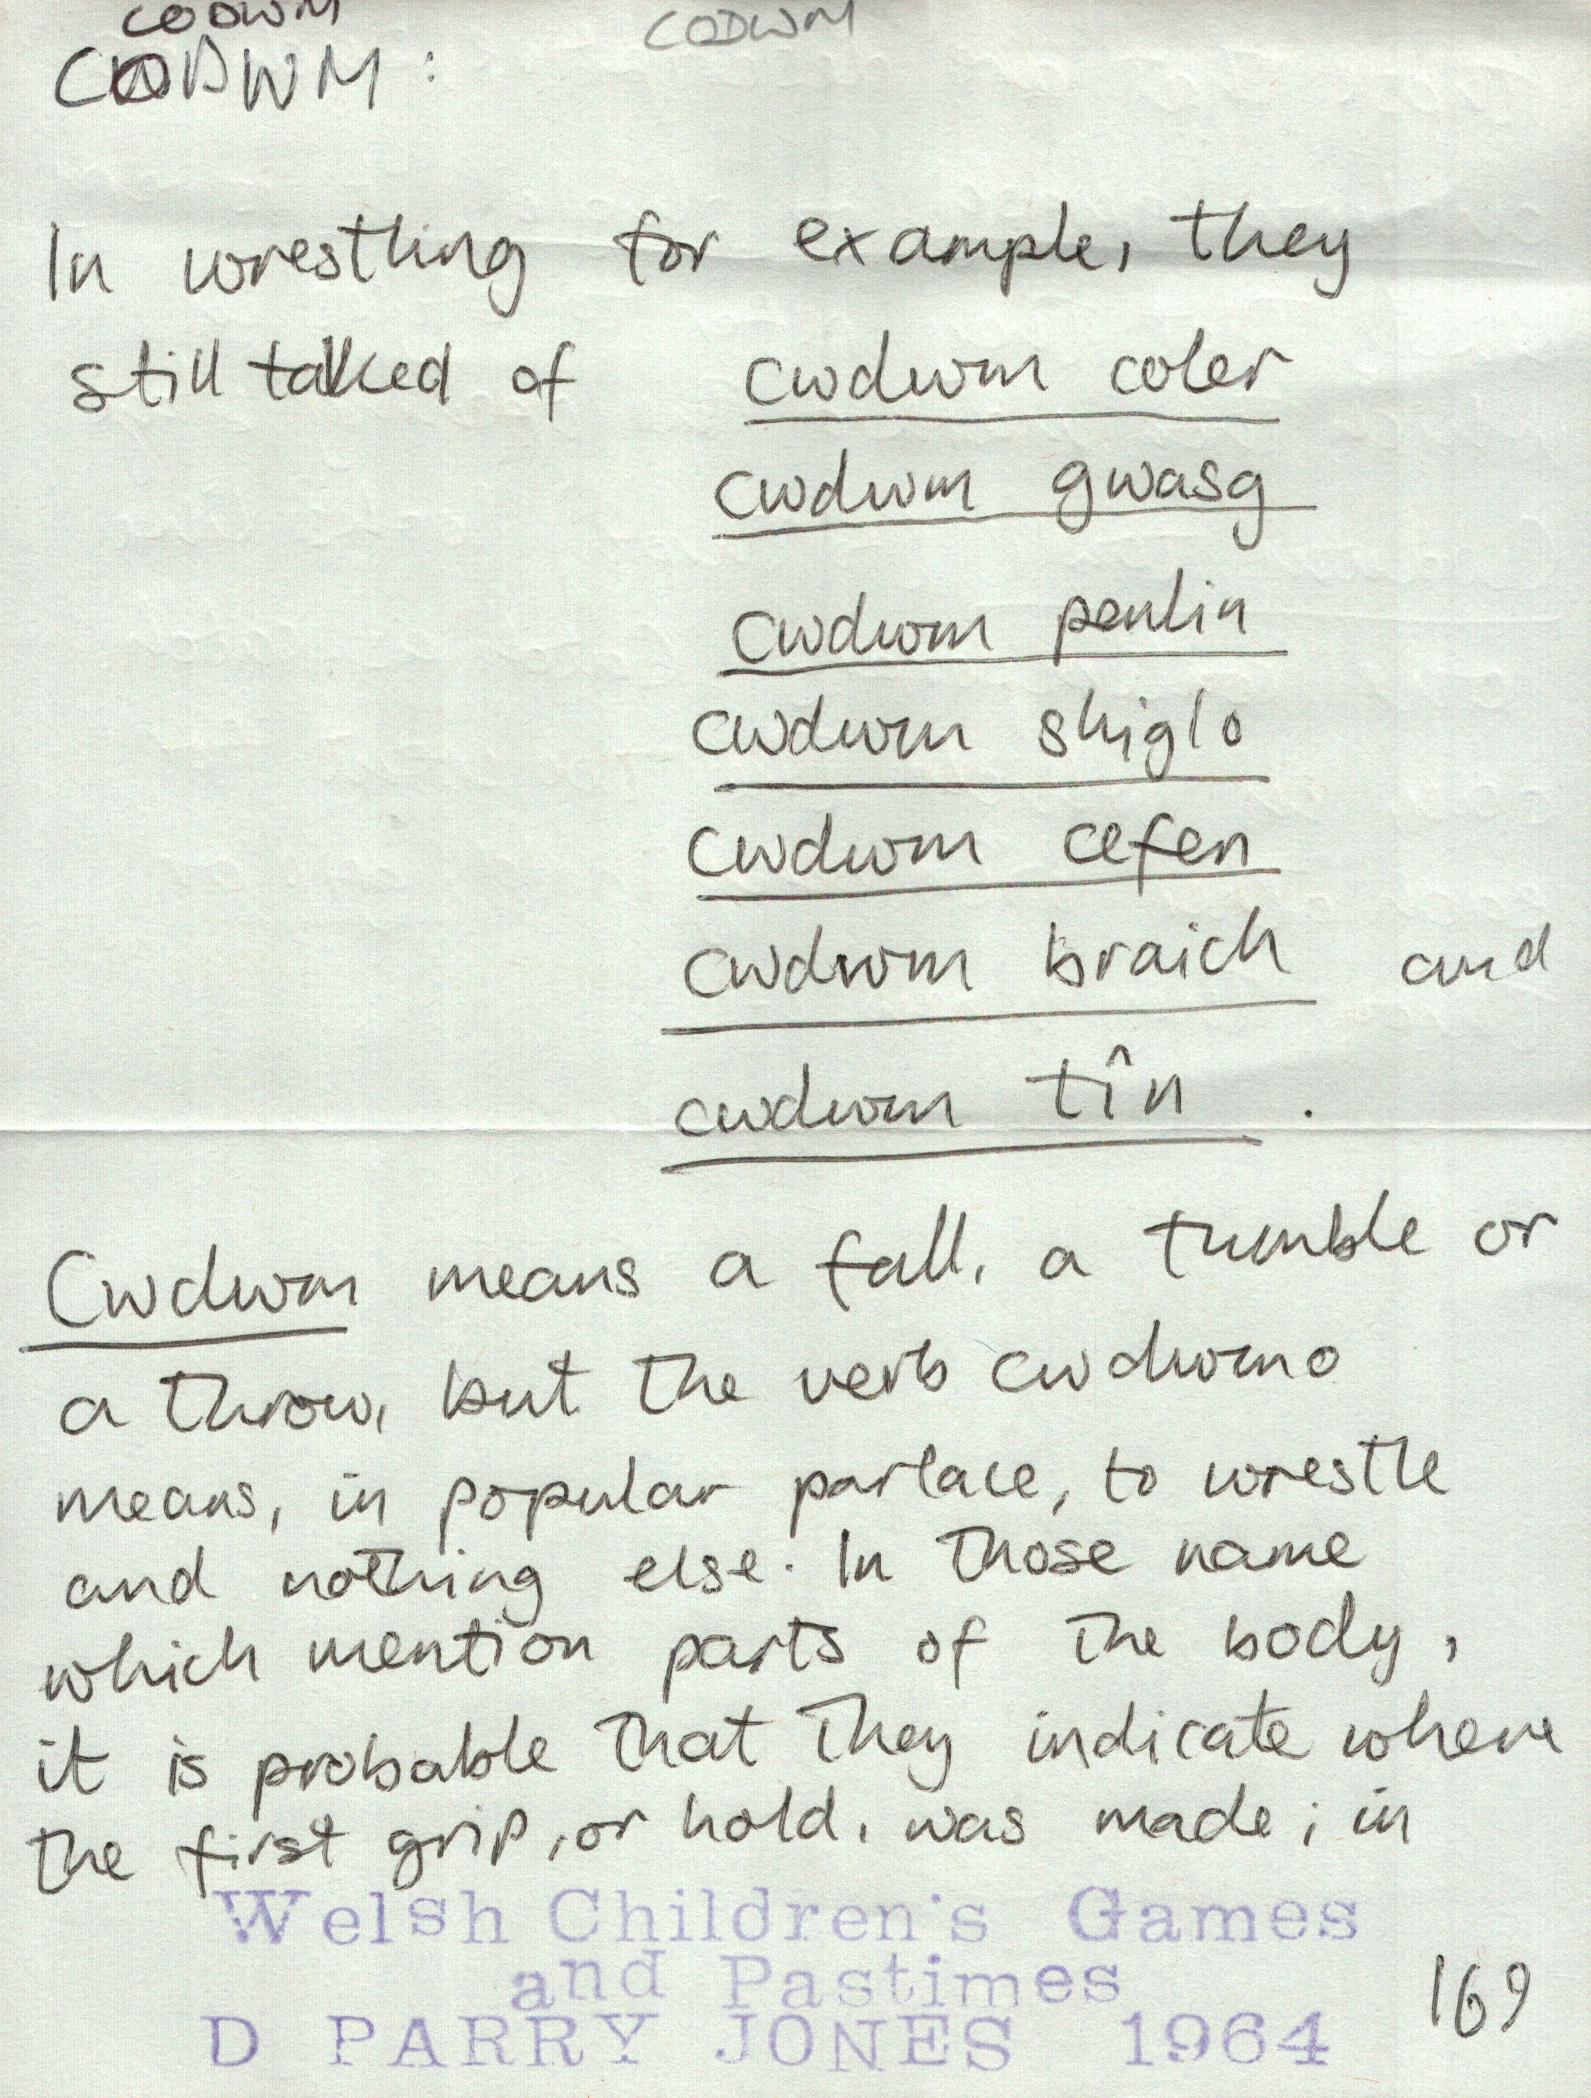 CODWM CODWM
CODWM:
In wrestling for example, they
still talked of cwdwm coler
cwdwm gwasg
cwdwm penlin
cwdwm shiglo
cwdwm cefen
cwdwm braich and
cwdwm tîn.
Cwdwm means a fall, a tumble or
a throw, but the verb cwdwmo
means, in popular parlace, to wrestle
and nothing else. In those name
which mention parts of the body,
it is probable that they indicate where
the first grip, or hold, was made; in
Welsh Children's Games
and Pastimes
D PARRY JONES 1964 169